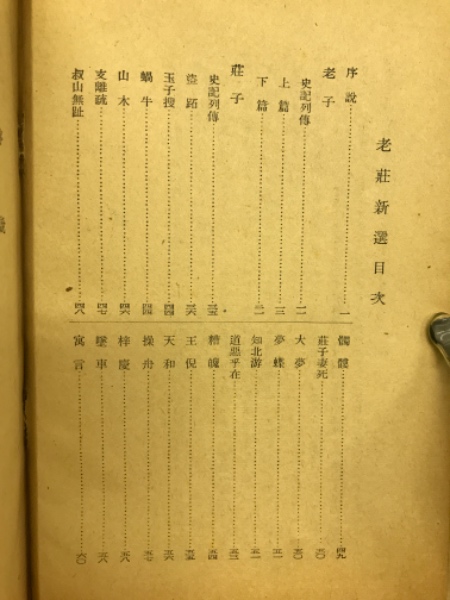 老莊新選目次
序說……一
老子
史記列傳……
上篇……一三
下篇……二一
莊子
史記列傳……三五
盜跖……三六
王子搜……四四
蝸牛……四四
山木……四六
支離疏……四七
叔山無趾……四八
髑髏……四九
莊子妻死……五〇
大夢……五〇
夢蝶……五一
知北游……五一
道惡乎在……五三
糟魄……五四
王倪……五五
天和……五六
操舟……五七
梓慶……五八
墜車……五八
寓言……六〇